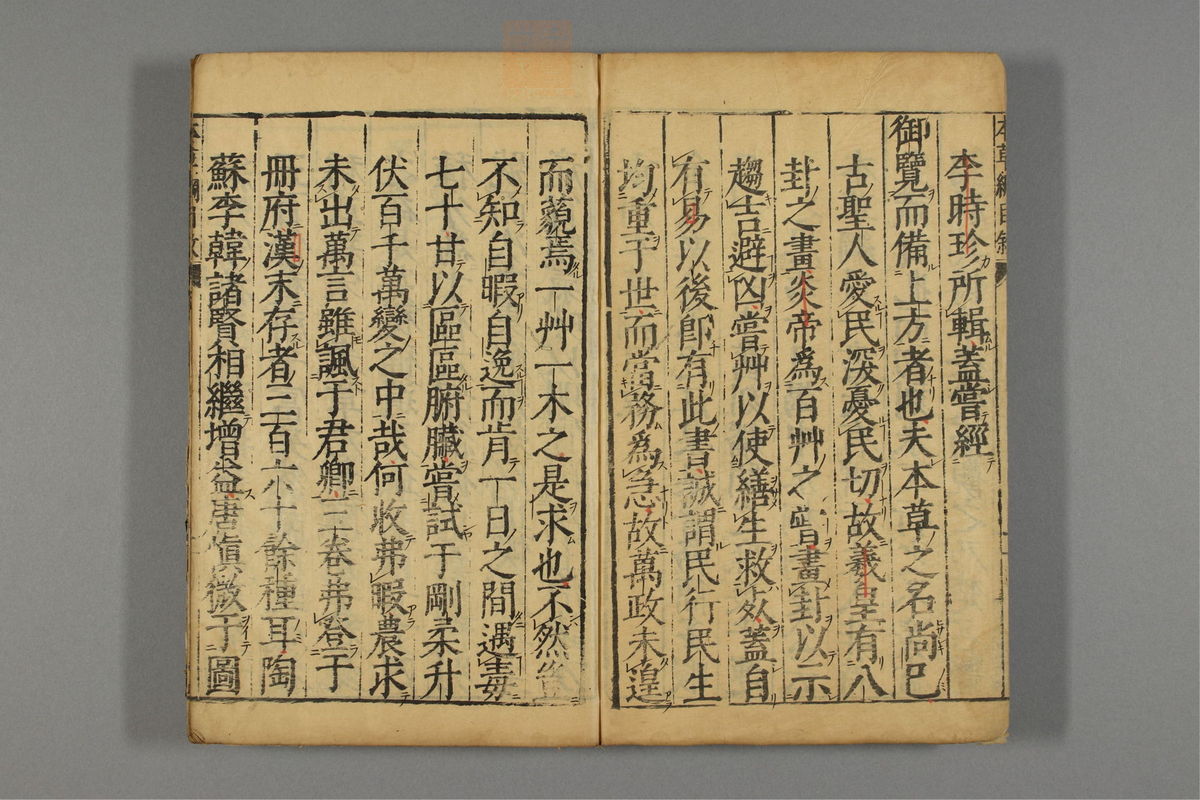 李時珍所輯蓋嘗經
御覽而備上方者也夫本草之名尚巳
古聖人愛民深憂民切故羲皇有八
卦之畫炎帝為百艸之嘗畫卦以示
趨吉避凶嘗艸以使繕生救蓋自
有易以後即有此書誠謂民行民生
均重于世而當務為急故萬政未遑
而藐焉一艸一木之是求也不然
不知自暇自逸而肯一日之間遇毒
七十甘以區區腑臟嘗試于剛柔升
伏百千萬變之中哉何收弗暇農求
未出萬言雖諷于君卿三卷弗登于
冊府漢末存者三百六十餘種耳陶
蘇李韓諸賢相繼增益唐慎微于圖